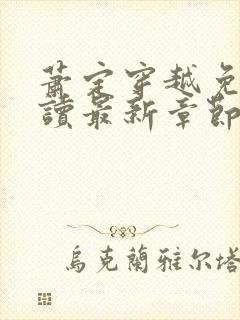 萧定穿越免
读最新章節
烏克蘭雅尔塔